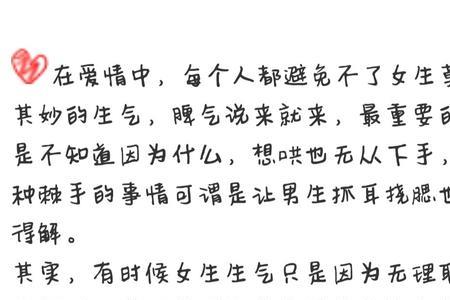 在爱情中，每个人都避免不了女生莫
其妙的生气，脾气说来就来，最重要的
是不知道因为什么，想哄也无从下手，
种棘手的事情可谓是让男生抓耳挠腮也
得解。
其实，有时候女生生气只是因为无理取